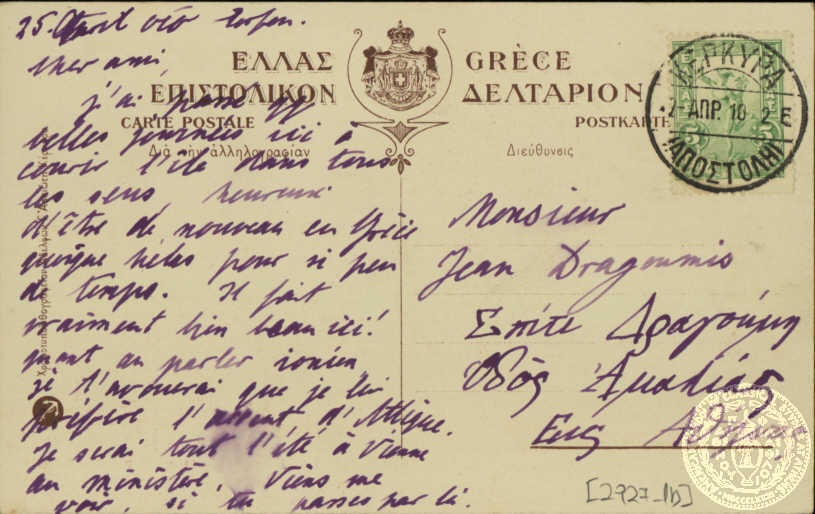 25. Avril
Cher ami,
j'ai passé qq
belles journées ici à
courir l'île dans tous
les sens, heureux
d'être de nouveau en Grèce
quoique hélas pour si peu
de temps. Il fait
vraiment bien beau ici!
quant au parler ionien
je t'avouerai que je lui
préfère l'accent d'Attique.
Je serai tout l'été à Vienne
au ministère. Viens me
voir, si tu passes par là.
ΕΛΛΑΣ GRÈCE
ΕΠΙΣΤΟΛΙΚΟΝ ΔΕΛΤΑΡΙΟΝ
CARTE POSTALE POSTKARTE
Διὰ τὴν ἀλληλογραφίαν Διεύθυνσις
ΚΕΡΚΥΡΑ
ΑΠΡ. 10 2 Ε
ΑΠΟΣΤΟΛΗ
5 5
Monsieur
Jean Dragoumis
Σπίτι Δραγούμη
Ὁδὸς Ἀμαλίας
Εἰς Ἀθήνας
[2927_1b]